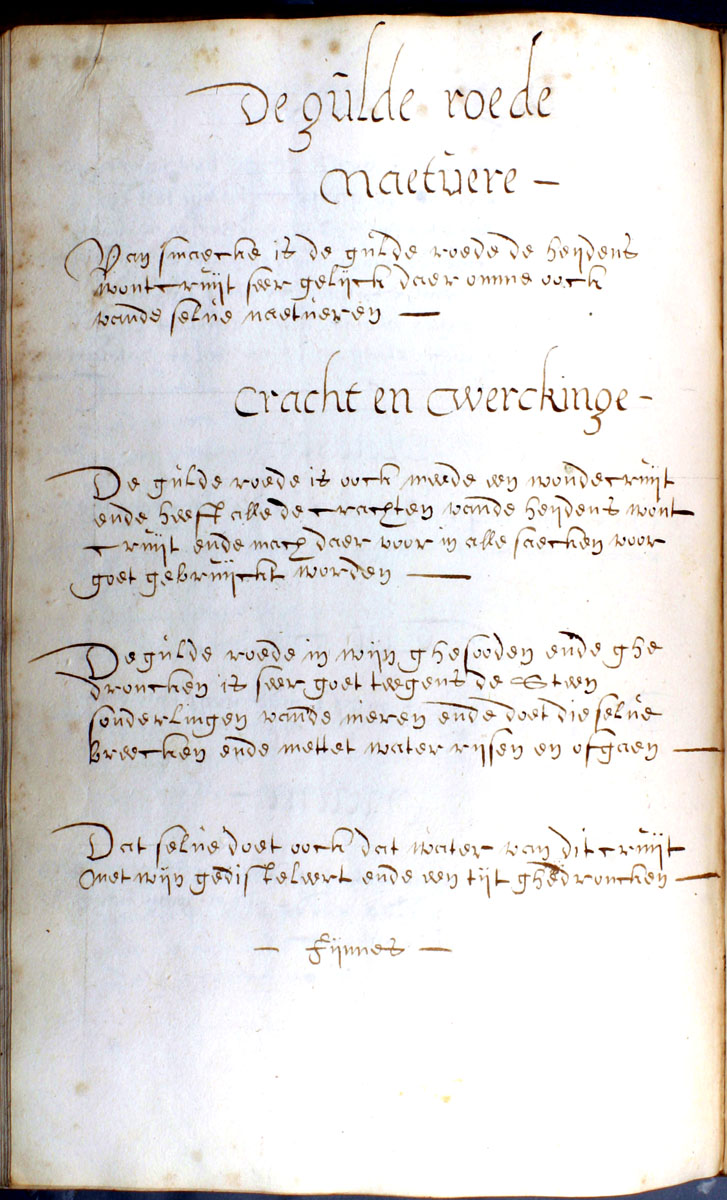 De gulde roede
Naetuere –
Van smaecke is de gulde roede de heijdens
wontcruijt seer gelijck daer omme oock
vande selue naetueren —
Cracht en Werckinge –
De gulde roede is oock meede een wondecruijt
ende heeft alle de crachten vande heijdens wont
cruijt ende mach daer voor in alle saecken voor
goet gebruijckt worden —
De gulde roede in wijn ghesooden ende ghe
droncken is seer goet teegens de Steen
sonderlingen vande nieren ende doet die selue
breecken ende mettet water rijsen en ofgaen —
Dat selue doet oock dat water van dit cruijt
Met wijn gedisteleert ende een tijt ghedroncken —
— fijnnes —